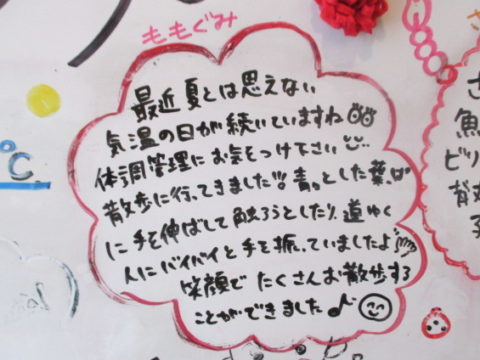 ももぐみ
最近 夏とは思えない
気温の日が続いていますね
体調管理にお気をつけ下さい
散歩に行ってきました!!青々とした葉っぱ
に手を伸ばして触ろうとしたり、道ゆく
人にバイバイと手を振っていましたよ
笑顔でたくさんお散歩する
ことができました♪
℃
さ
魚
ビリ